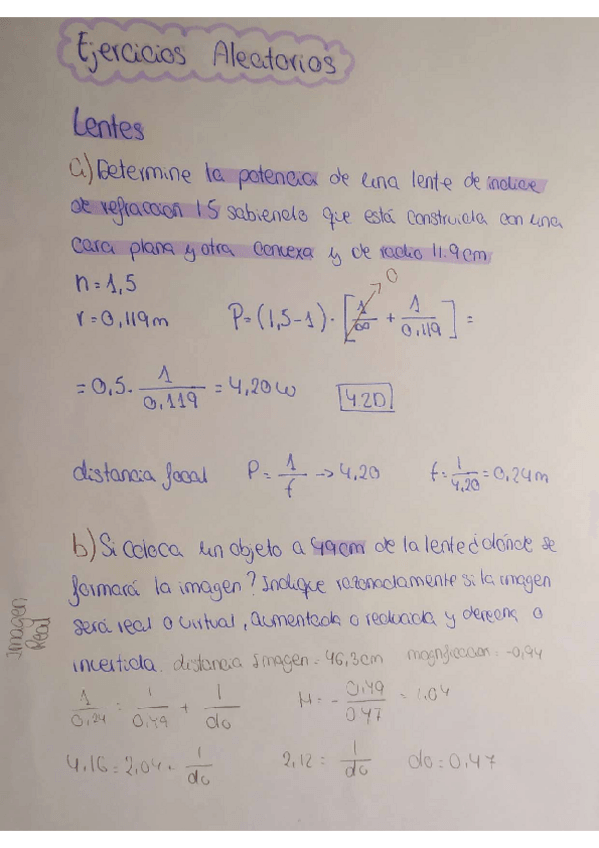 Ejercicios Aleatorios
Lentes
a) Determine la potencia de una lente de indice
de refracción 1'5 sabiendo que está construida con una
cara plana y otra convexa y de radio 11.9 cm
n = 1,5
r = 0,119m P = (1,5-1) · [1/∞ + 1/0,119] =
0
= 0,5 · 1/0,119 = 4,20 w 4.2D
distancia focal P = 1/f → 4,20 f = 1/4,20 = 0,24m
b) Si coloca un objeto a 49cm de la lente ¿dónde se
formará la imagen? Indique razonadamente si la imagen
será real o virtual, aumentada o reducida y derecha o
invertida. distancia imagen: 46,3cm magnificacion: -0,94
Imagen
Real
1/0,24 = 1/0,49 + 1/do M = - 0,49/0,47 = 1.04
4,16 = 2,04 + 1/do 2,12 = 1/do do = 0,47